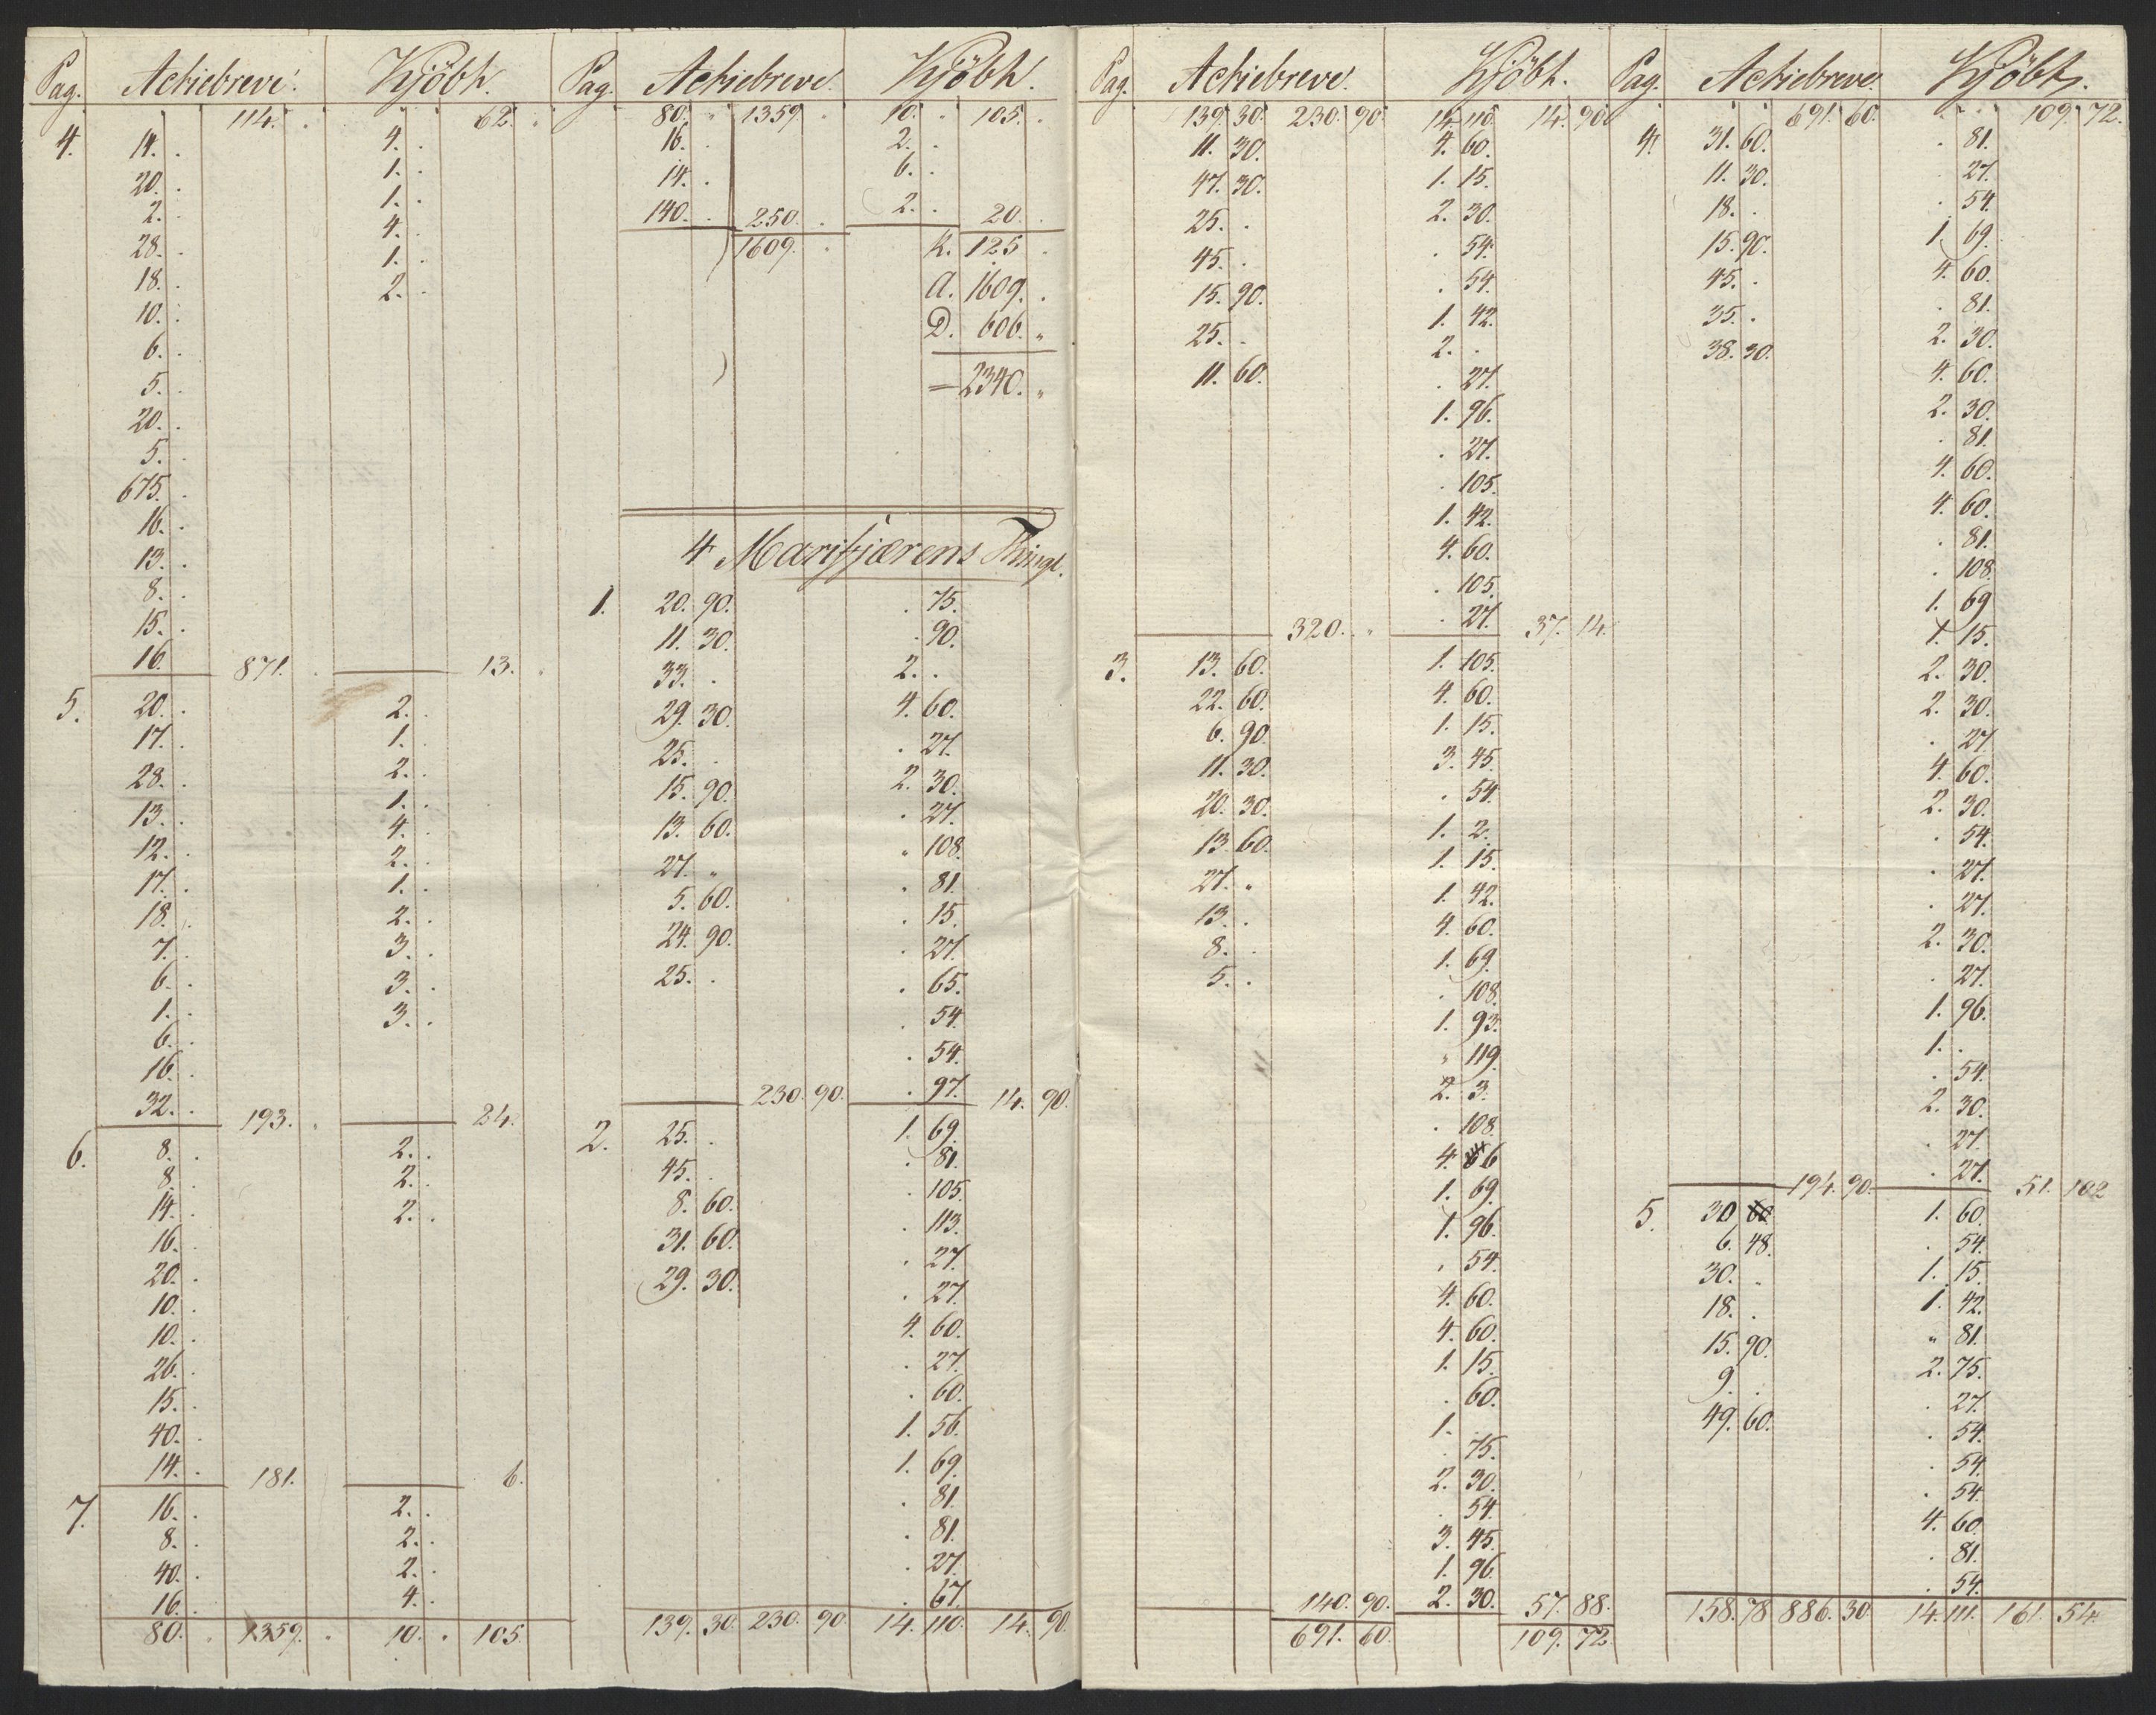 Pag. Actiebreve. Kjöbh.
114. . 62. .
4. 14. . 4. .
20. . 1. .
2. . 1. .
28. . 4. .
18. . 1. .
10. . 2. .
6. .
5. .
20. .
5. .
675. .
16. .
13. .
8. .
15. .
16. 871. . 13. .
5. 20. . 2. .
17. . 1. .
28. . 2. .
13. . 1. .
12. . 4. .
17. . 2. .
18. . 1. .
7. . 2. .
6. . 3. .
1. . 3. .
6. . 3. .
16. .
32. . 193. . 24.
6. 8. . 2. .
8. . 2. .
14. . 2. .
16. .
20. .
10. .
10. .
26. .
15. .
40. .
14. . 181. 6.
7. 16. . 2. .
8. . 2. .
40. . 2. .
16. . 4. .
80. " 1359. " 10. " 105.
Pag. Actiebreve. Kjöbh.
80. " 1359 10. " 105. .
16. . 2. .
14. . 6. .
140. . 250. . 2. . 20. .
1609. . K. 125 .
A. 1609. .
D. 606. "
= 2340. "
4 Marifjærens Thingl.
1. 20. 90. . 75.
11. 30. . 90.
33. . 2. .
29. 30. 4. 60.
25. . . 27.
15. 90. 2. 30.
13. 60. . 27.
27. " " 108.
5. 60. . 81.
24. 90. . 15.
25. . . 27.
. 65.
. 54.
. 54.
230. 90. . 97. 14. 90.
2. 25. . 1. 69.
45. . . 81.
8. 60. . 105.
31. 60. . 113.
29. 30. . 27.
. 27.
4. 60.
. 27.
. 60.
1. 56.
1. 69.
. 81.
. 81.
. 27.
. 67.
139. 30. 230. 90 14. 110. 14. 90.
Pag. Actiebreve. Kjöbh.
139. 30. 230. 90. 14. 110. 14. 90.
11. 30. 4. 60.
47. 30. 1. 15.
25. . 2. 30.
45. . . 54.
15. 90. . 54.
25. . 1. 42.
11. 60. 2. .
. 27.
1. 96.
. 27.
. 105.
1. 42.
4. 60.
. 105.
320. " . 27. 37. 14.
3. 13. 60. 1. 105.
22. 60. 4. 60.
6. 90. 1. 15.
11. 30. 3. 45.
20. 30. . 54.
13. 60. 1. 2.
27. " 1. 15.
13. . 1. 42.
8. . 4. 60.
5. . 1. 69.
. 108.
1. 93.
" 119.
2. 3.
. 108.
4. 6
1. 69.
1. 96.
. 54.
4. 60.
4. 60.
1. 15.
. 60.
1. .
. 75.
2. 30.
. 54.
3. 45.
1. 96.
140. 90. 2. 30. 57. 88.
691. 60. 109. 72.
Pag. Actiebreve. Kjöbh.
691. 60. 109. 72.
4. 31. 60. . 81.
11. 30. . 27.
18. . . 54.
15. 90. 1. 69.
45. . 4. 60.
35. . . 81.
38. 30. 2. 30.
4. 60.
2. 30.
. 81.
4. 60.
4. 60.
. 81.
. 108.
1. 69
1. 15.
2. 30.
2. 30.
. 27
4. 60.
2. 30.
. 54.
. 27.
. 27.
2. 30.
. 27.
1. 96.
1. .
. 54.
2. 30.
. 27.
194. 90. . 27. 51. 102
5. 30 60 1. 60.
6. 48. . 54.
30. . 1. 15.
18. . 1. 42.
15. 90. " 81.
9. . 2. 75.
49. 60. . 27.
. 54.
. 54.
. 54.
4. 60.
. 81.
. 54.
158. 78 886. 30 14. 111. 161. 54